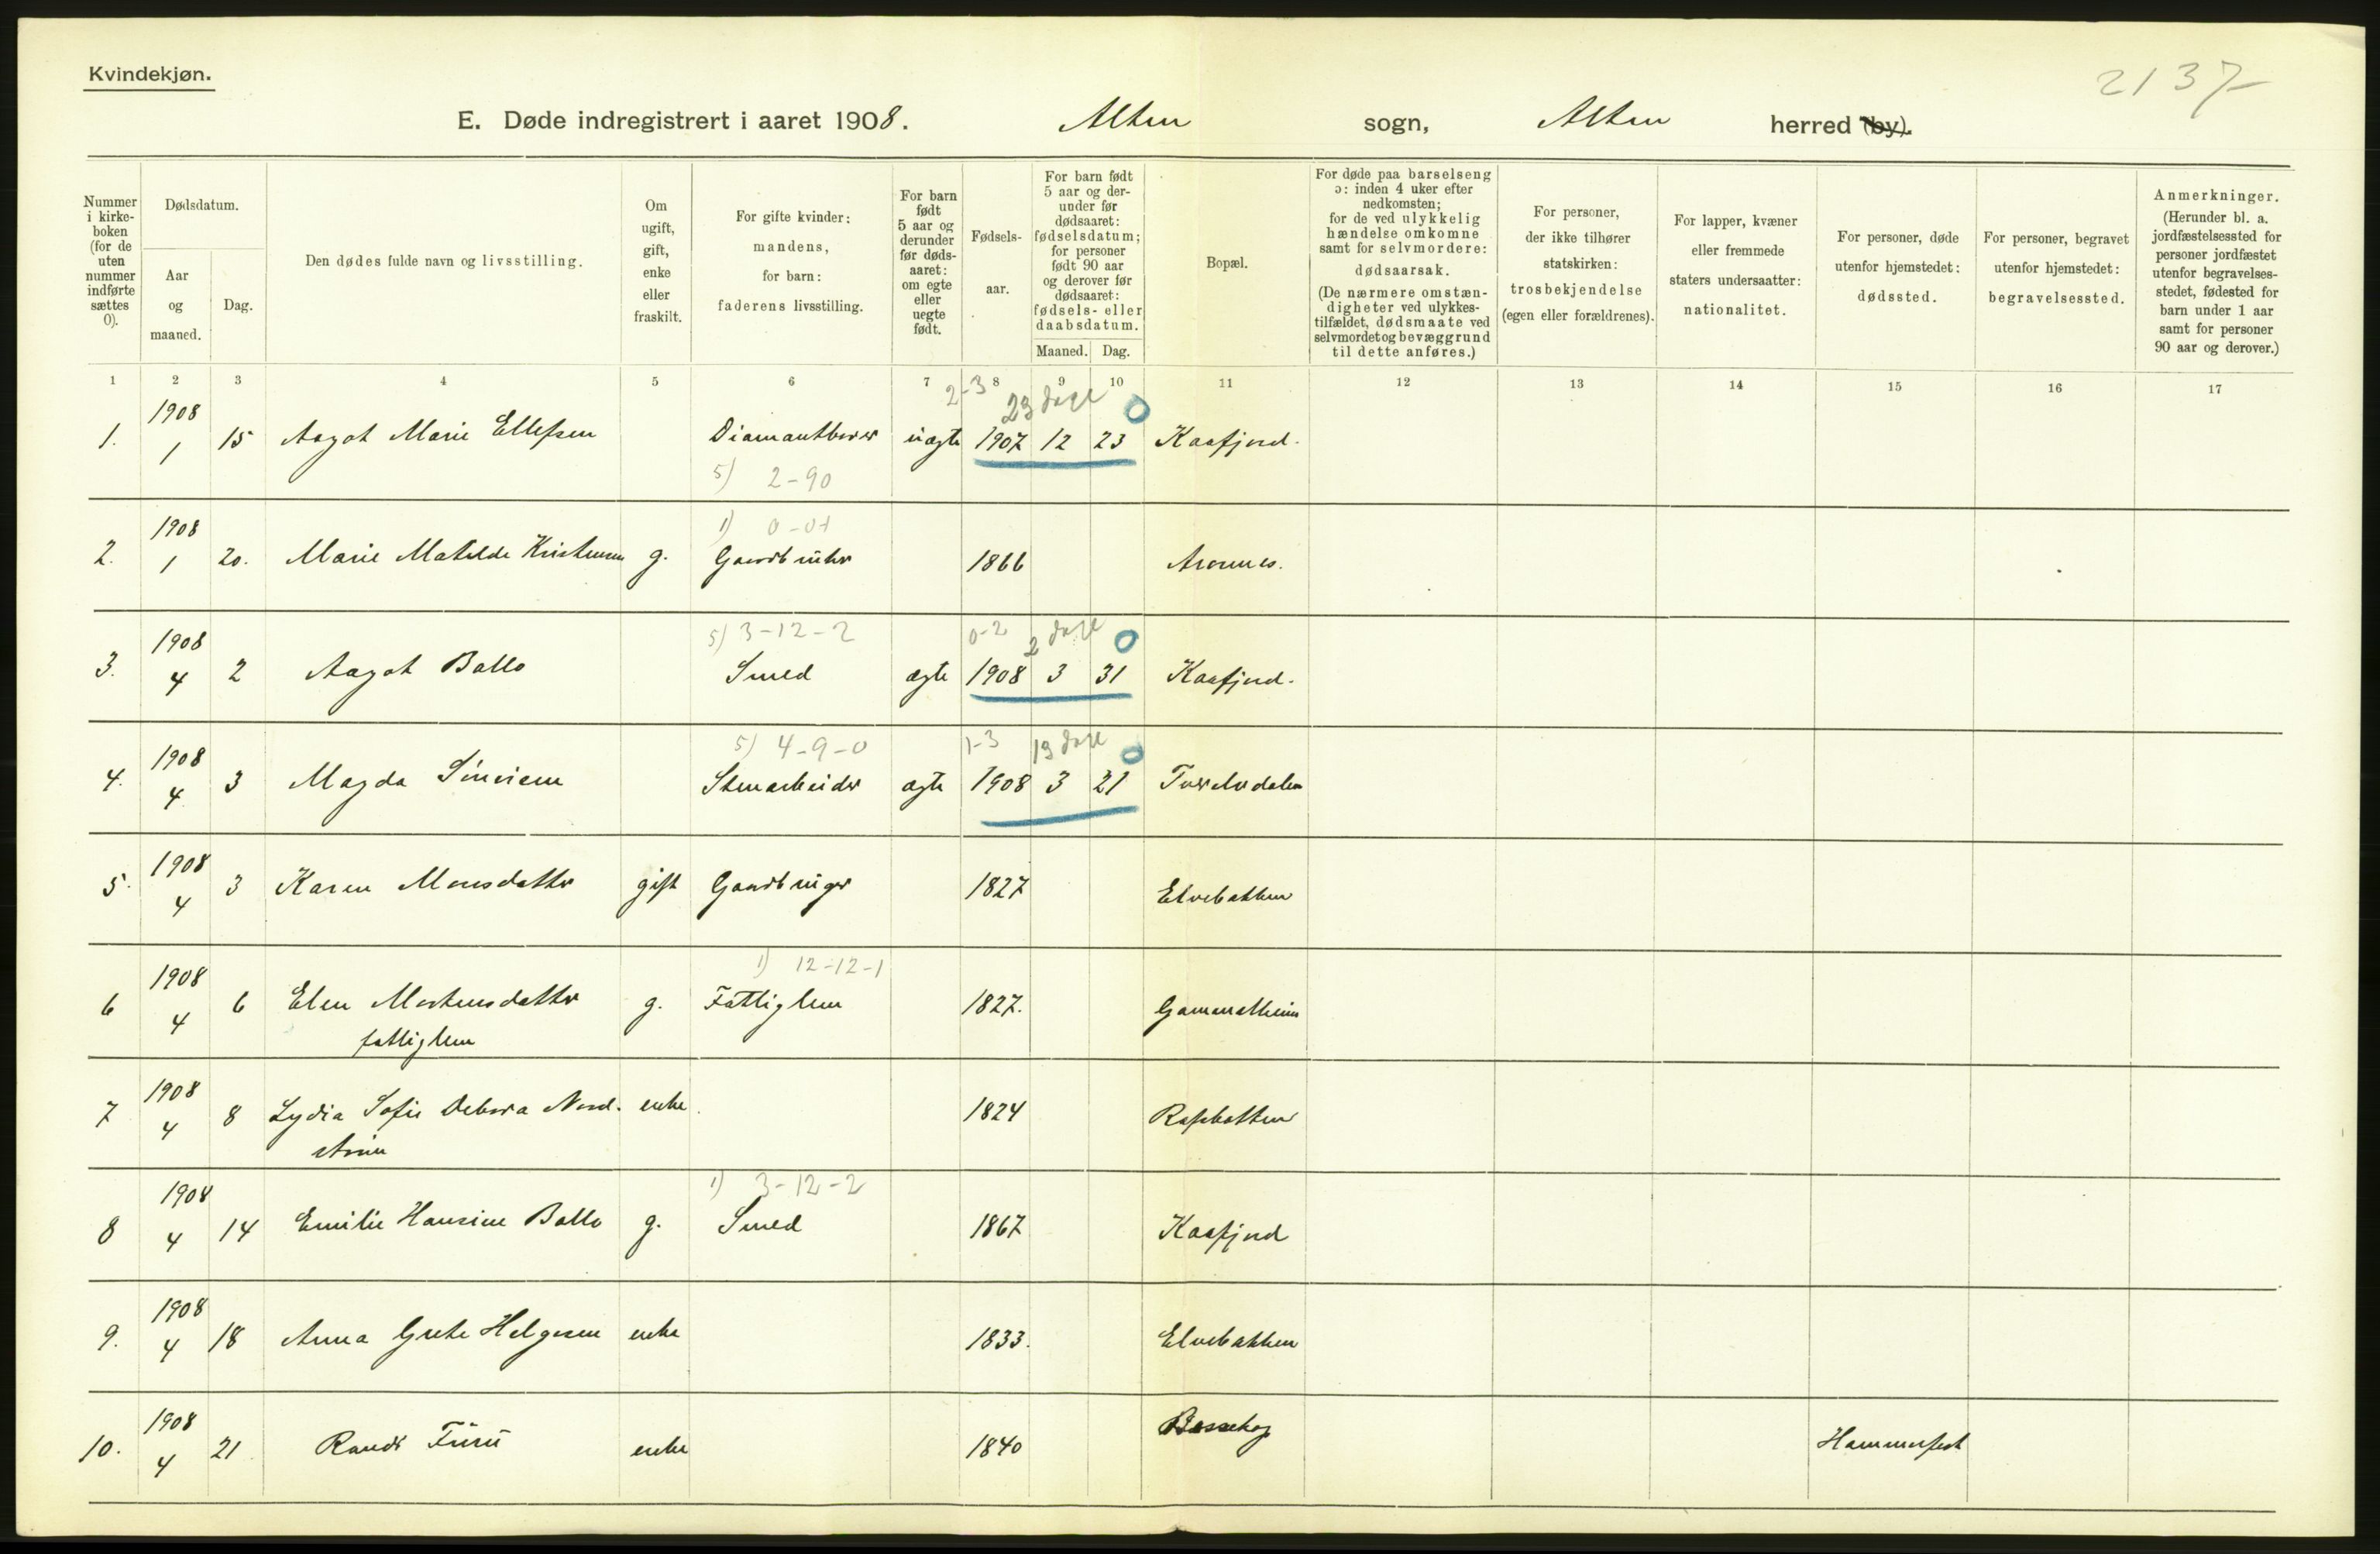 Kvindekjøn.
2137
E. Døde indregistrert i aaret 1908. Alten sogn, Alten herred (by).
Nummer i kirke-boken (for de uten nummer indførte sættes 0).
Dødsdatum.
Aar og maaned.
Dag.
Den dødes fulde navn og livsstilling.
Om ugift, gift, enke eller fraskilt.
For gifte kvinder: mandens, for barn: faderens livsstilling.
For barn født 5 aar og derunder før døds-aaret: om egte eller uegte født.
Fødsels-aar.
For barn født 5 aar og der-under før dødsaaret: fødselsdatum; for personer født 90 aar og derover før dødsaaret: fødsels- eller daabsdatum.
Maaned. Dag.
Bopæl.
For døde paa barselseng ɔ: inden 4 uker efter nedkomsten; for de ved ulykkelig hændelse omkomne samt for selvmordere: dødsaarsak. (De nærmere omstæn-digheter ved ulykkes-tilfældet, dødsmaate ved selvmordet og bevæggrund til dette anføres.)
For personer, der ikke tilhører statskirken: trosbekjendelse (egen eller forældrenes).
For lapper, kvæner eller fremmede staters undersaatter: nationalitet.
For personer, døde utenfor hjemstedet: dødssted.
For personer, begravet utenfor hjemstedet: begravelsessted.
Anmerkninger. (Herunder bl. a. jordfæstelsessted for personer jordfæstet utenfor begravelses-stedet, fødested for barn under 1 aar samt for personer 90 aar og derover.)
1 2 3 4 5 6 7 8 9 10 11 12 13 14 15 16 17
2-3 23 dage 0
1. 1908 1 15 Aagot Marie Ellefsen Diamantborer uægte 1907 12 23 Kaafjord.
5) 2-90
1) 0-01
2. 1908 1 20. Marie Matilde Kristensen g. Gaardbruker 1866 Aronnes.
5) 3-12-2 0-2 2 dage 0
3. 1908 4 2 Aagot Ballo Smed ægte 1908 3 31 Kaafjord.
5) 4-9-0 1-3 13 dage 0
4. 1908 4 3 Magda Siniviem Stenarbeider ægte 1908 3 21 Tverelvdalen
5. 1908 4 3 Karen Monsdatter gift Gaardbruger 1827 Elvebakken
1) 12-12-1
6 1908 4 6 Elen Mortensdatter g. Fattiglem 1827. Gammelheim
fattiglem
7 1908 4 8 Lydia Sofie Debora Nord- enke. 1824 Rafsbotten
strøm
1) 3-12-2
8 1908 4 14 Emilie Hansine Ballo g. Smed 1867 Kaafjord
9. 1908 4 18 Anna Grete Helgesen enke 1833. Elvebakken
10. 1908 4 21 Randi Furu enke 1840 Bossekop Hammerfest